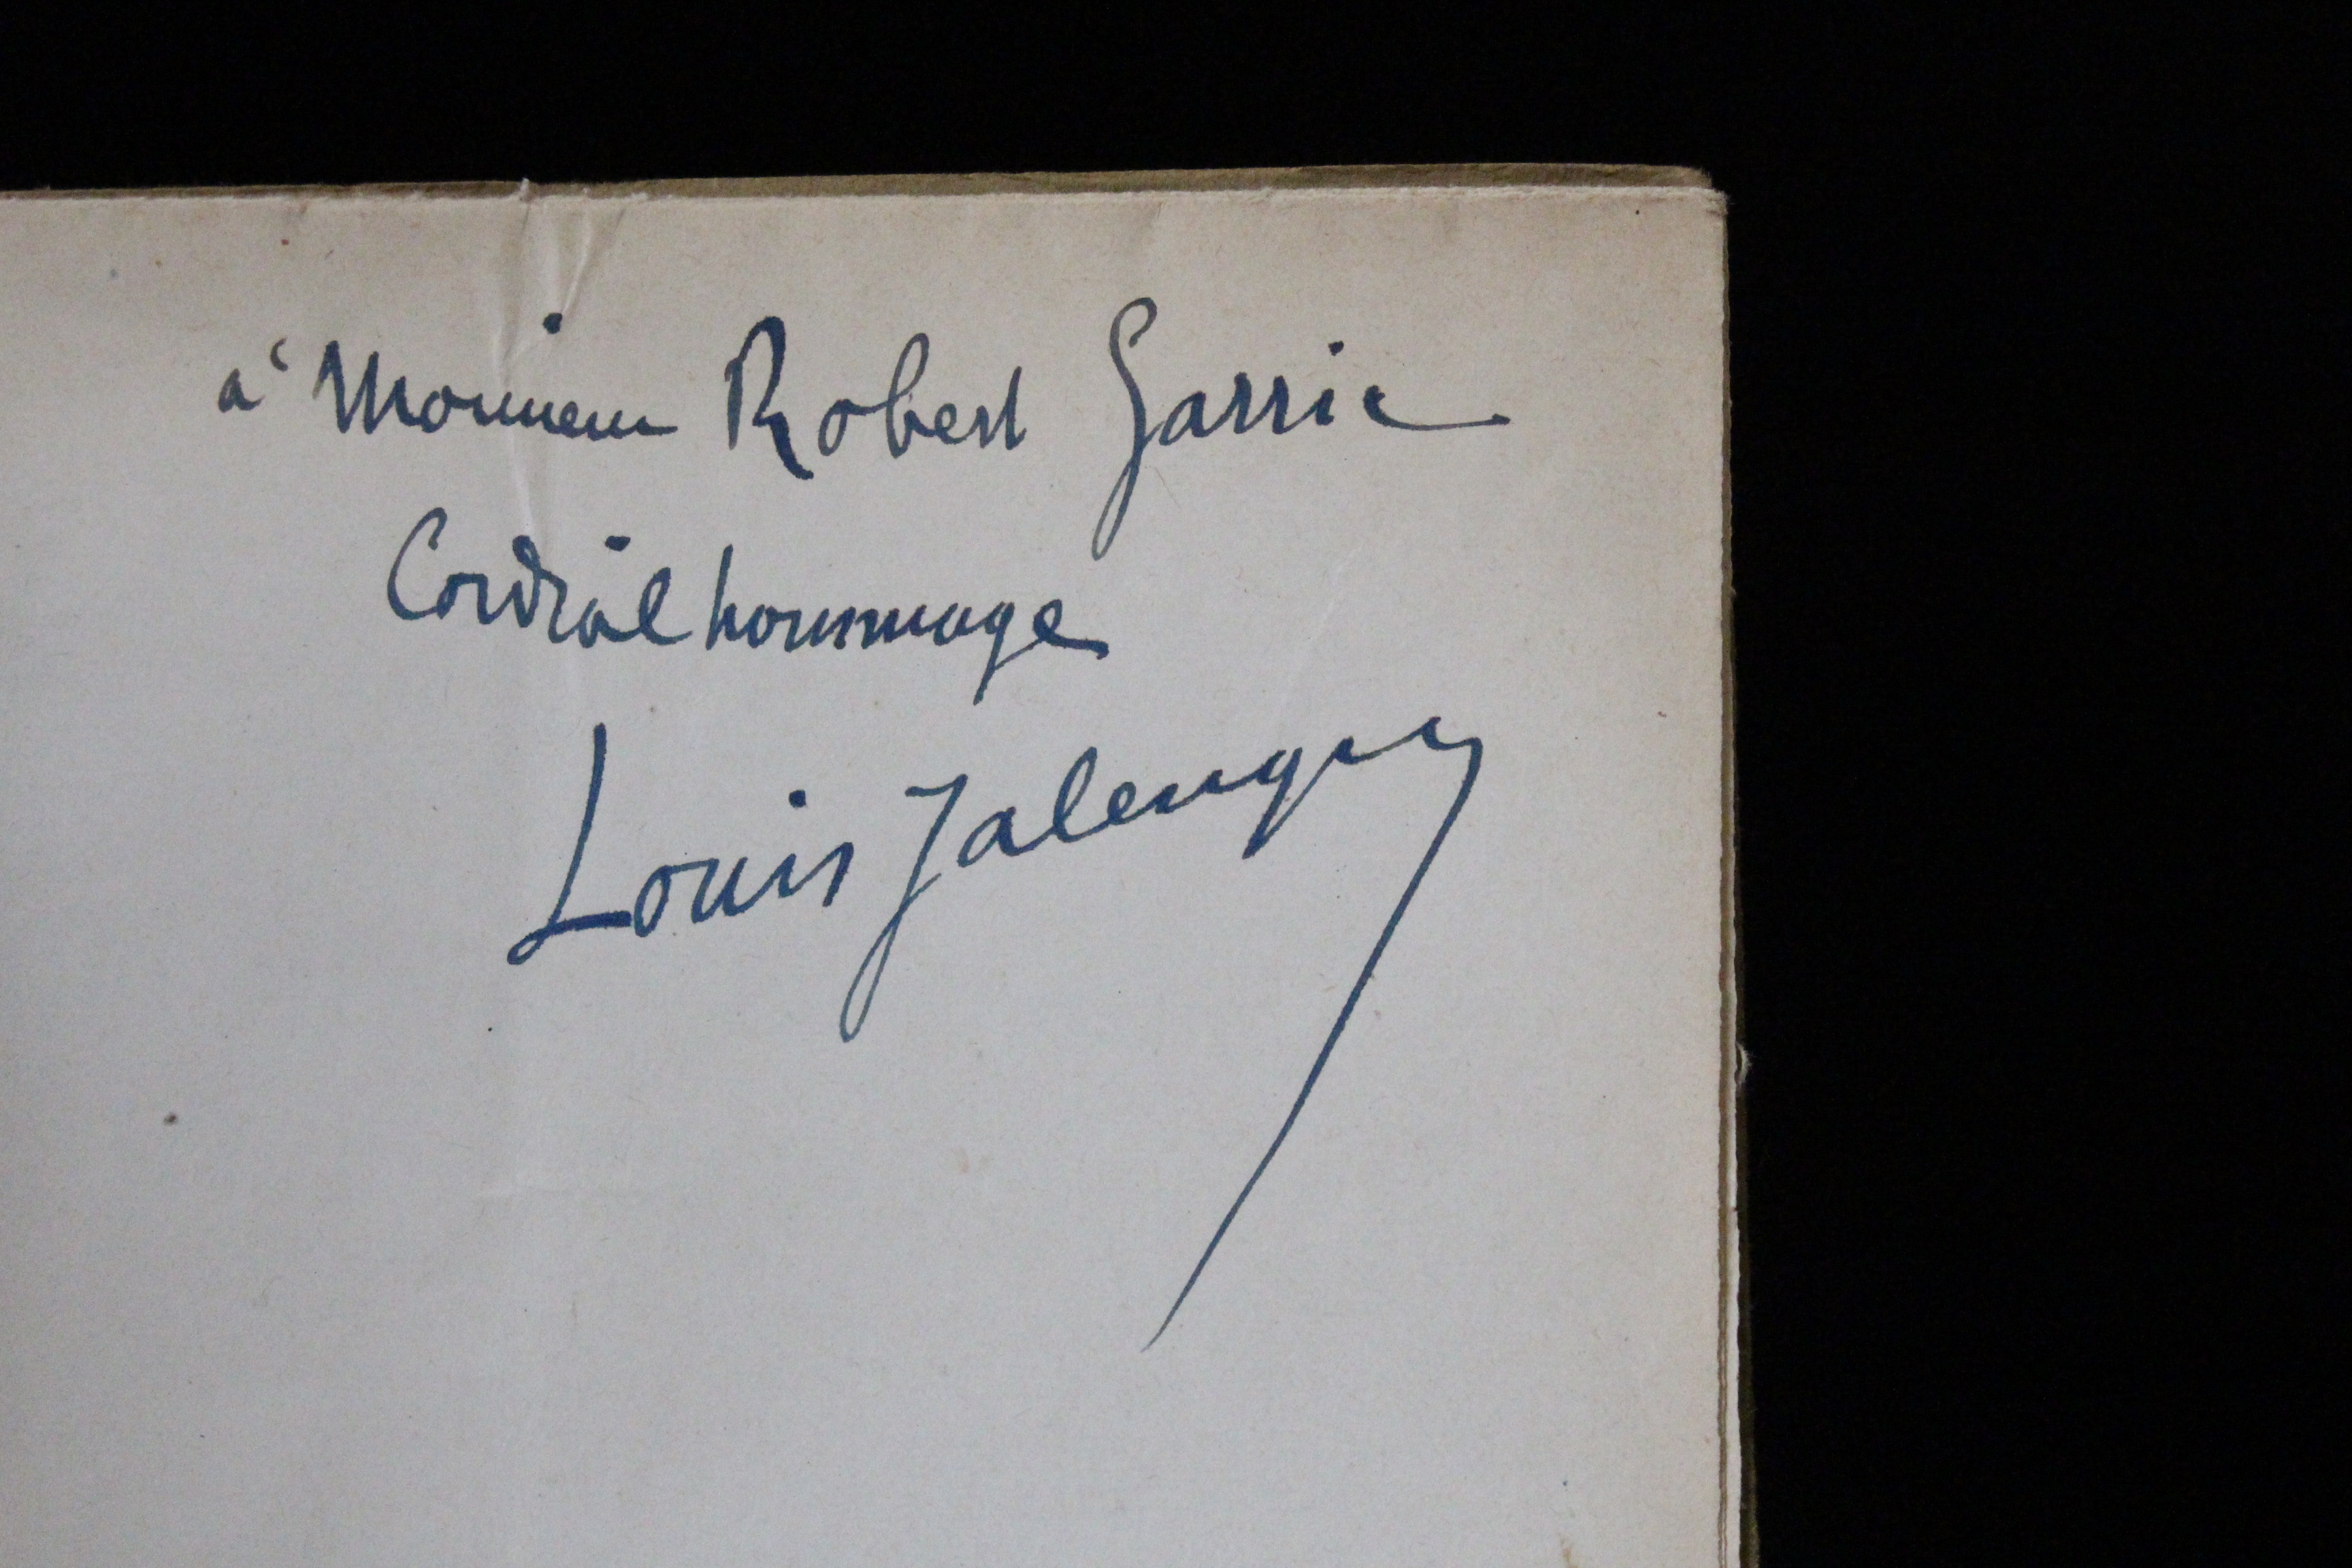 à Monsieur Robert Garric
Cordial hommage
Louis Jalenques